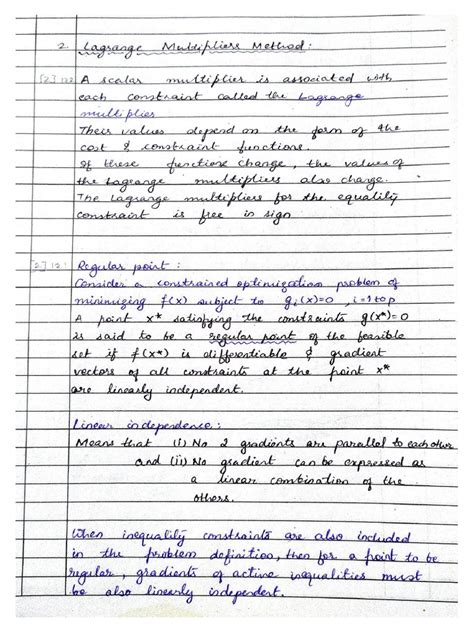 2. Lagrange Multipliers Method:
[2] 122 A scalar multiplier is associated with
each constraint called the Lagrange
multiplier
Their values depend on the form of the
cost & constraint functions.
If these functions change, the values of
the Lagrange multipliers also change.
The Lagrange multipliers for the equality
constraint is free in sign
[2] 121 Regular point:
Consider a constrained optimization problem of
minimizing f(x) subject to gi(x)=0, i=1 to p
A point x* satisfying the constraints g(x*)=0
is said to be a regular point of the feasible
set if f(x*) is differentiable & gradient
vectors of all constraints at the point x*
are linearly independent.
Linear independence:
Means that (i) No 2 gradients are parallel to each other
and (ii) No gradient can be expressed as
a linear combination of the
others.
When inequality constraints are also included
in the problem definition, then for a point to be
regular, gradients of active inequalities must
be also linearly independent.